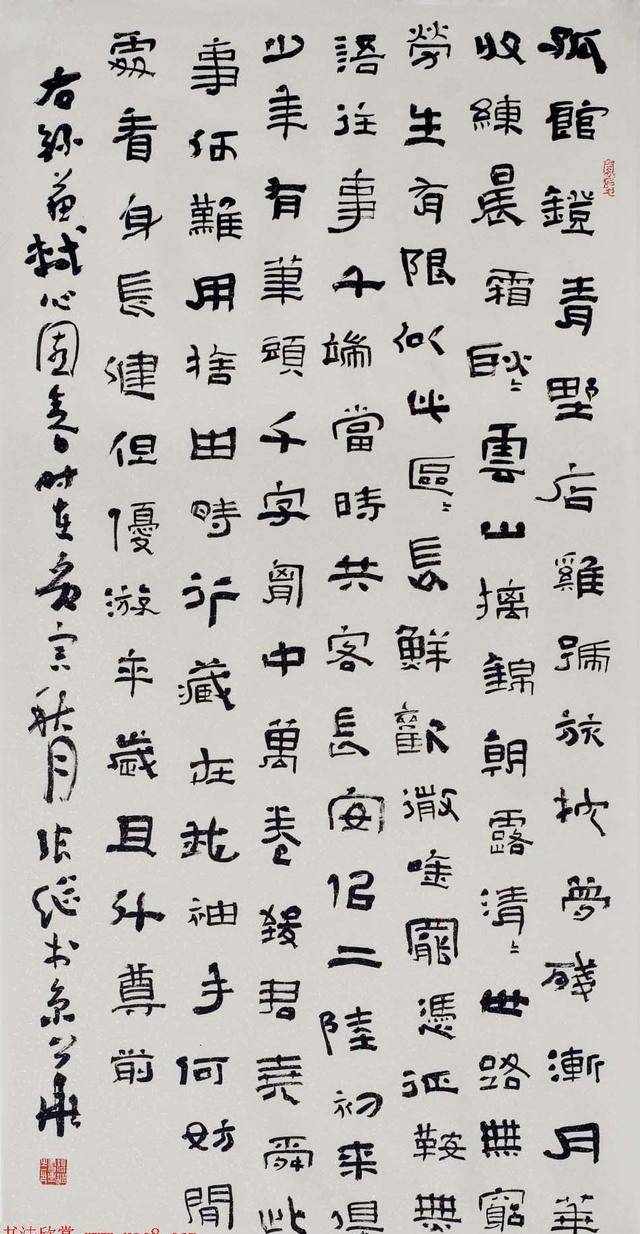 孤館鐙青野店雞號旅枕夢殘漸月華
收練晨霜耿々雲山摛錦朝露清々世路無窮
勞生有限似此區々長鮮歡微唫罷憑征鞍無
語往事千端當時共客長安似二陸初來俱
少年有筆頭千字胷中萬卷致君堯舜此
事何難用捨由時行藏在我袖手何妨閒
處看身長健但優游卒歲且鬥尊前
右錄蘇軾沁園春时在庚寅秋月张继书京華